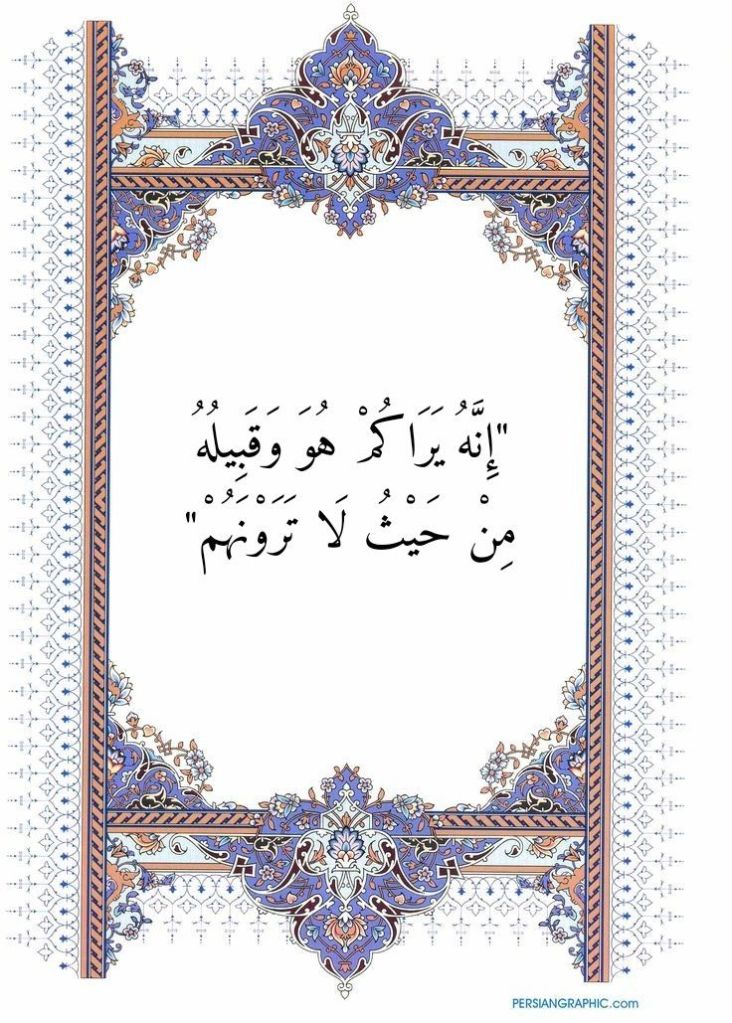 "إِنَّهُ يَرَاكُمْ هُوَ وَقَبِيلُهُ
مِنْ حَيْثُ لَا تَرَوْنَهُمْ"
PERSIANGRAPHIC.com